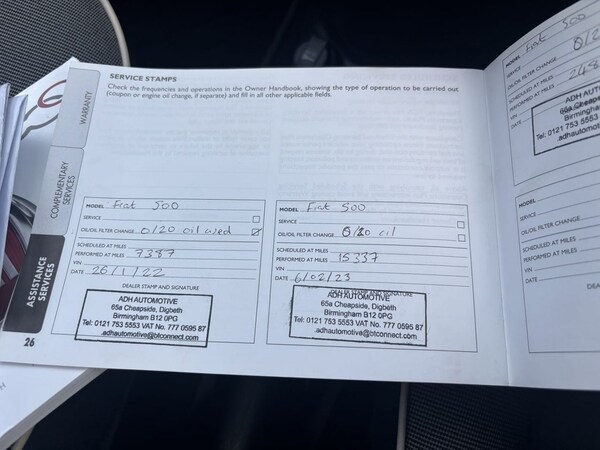 SERVICE STAMPS
Check the frequencies and operations in the Owner Handbook, showing the type of operation to be carried out
(coupon or engine oil change, if separate) and fill in all other applicable fields.
WARRANTY
COMPLEMENTARY
SERVICES
ASSISTANCE
SERVICES
26
MODEL Fiat 500
SERVICE
OIL/OIL FILTER CHANGE 0/20 oil used
SCHEDULED AT MILES
PERFORMED AT MILES 7387
VIN
DATE 26/1/22
DEALER STAMP AND SIGNATURE
ADH AUTOMOTIVE
65a Cheapside, Digbeth
Birmingham B12 0PG
Tel: 0121 753 5553 VAT No. 777 0595 87
adhautomotive@btconnect.com
MODEL Fiat 500
SERVICE
OIL/OIL FILTER CHANGE 0/20 oil
SCHEDULED AT MILES
PERFORMED AT MILES 15337
VIN
DATE 6/02/23
DEALER STAMP AND SIGNATURE
ADH AUTOMOTIVE
65a Cheapside, Digbeth
Birmingham B12 0PG
Tel: 0121 753 5553 VAT No. 777 0595 87
adhautomotive@btconnect.com
MODEL Fiat 500
SERVICE
OIL/OIL FILTER CHANGE
SCHEDULED AT MILES
PERFORMED AT MILES
VIN
DATE
ADH AUT
65a Cheapside
Birmingham
Tel: 0121 753 5553
adhautomot
MODEL
SERVICE
OIL/OIL FILTER CHANGE
SCHEDULED AT MILES
PERFORMED AT MILES
VIN
DATE
DEA